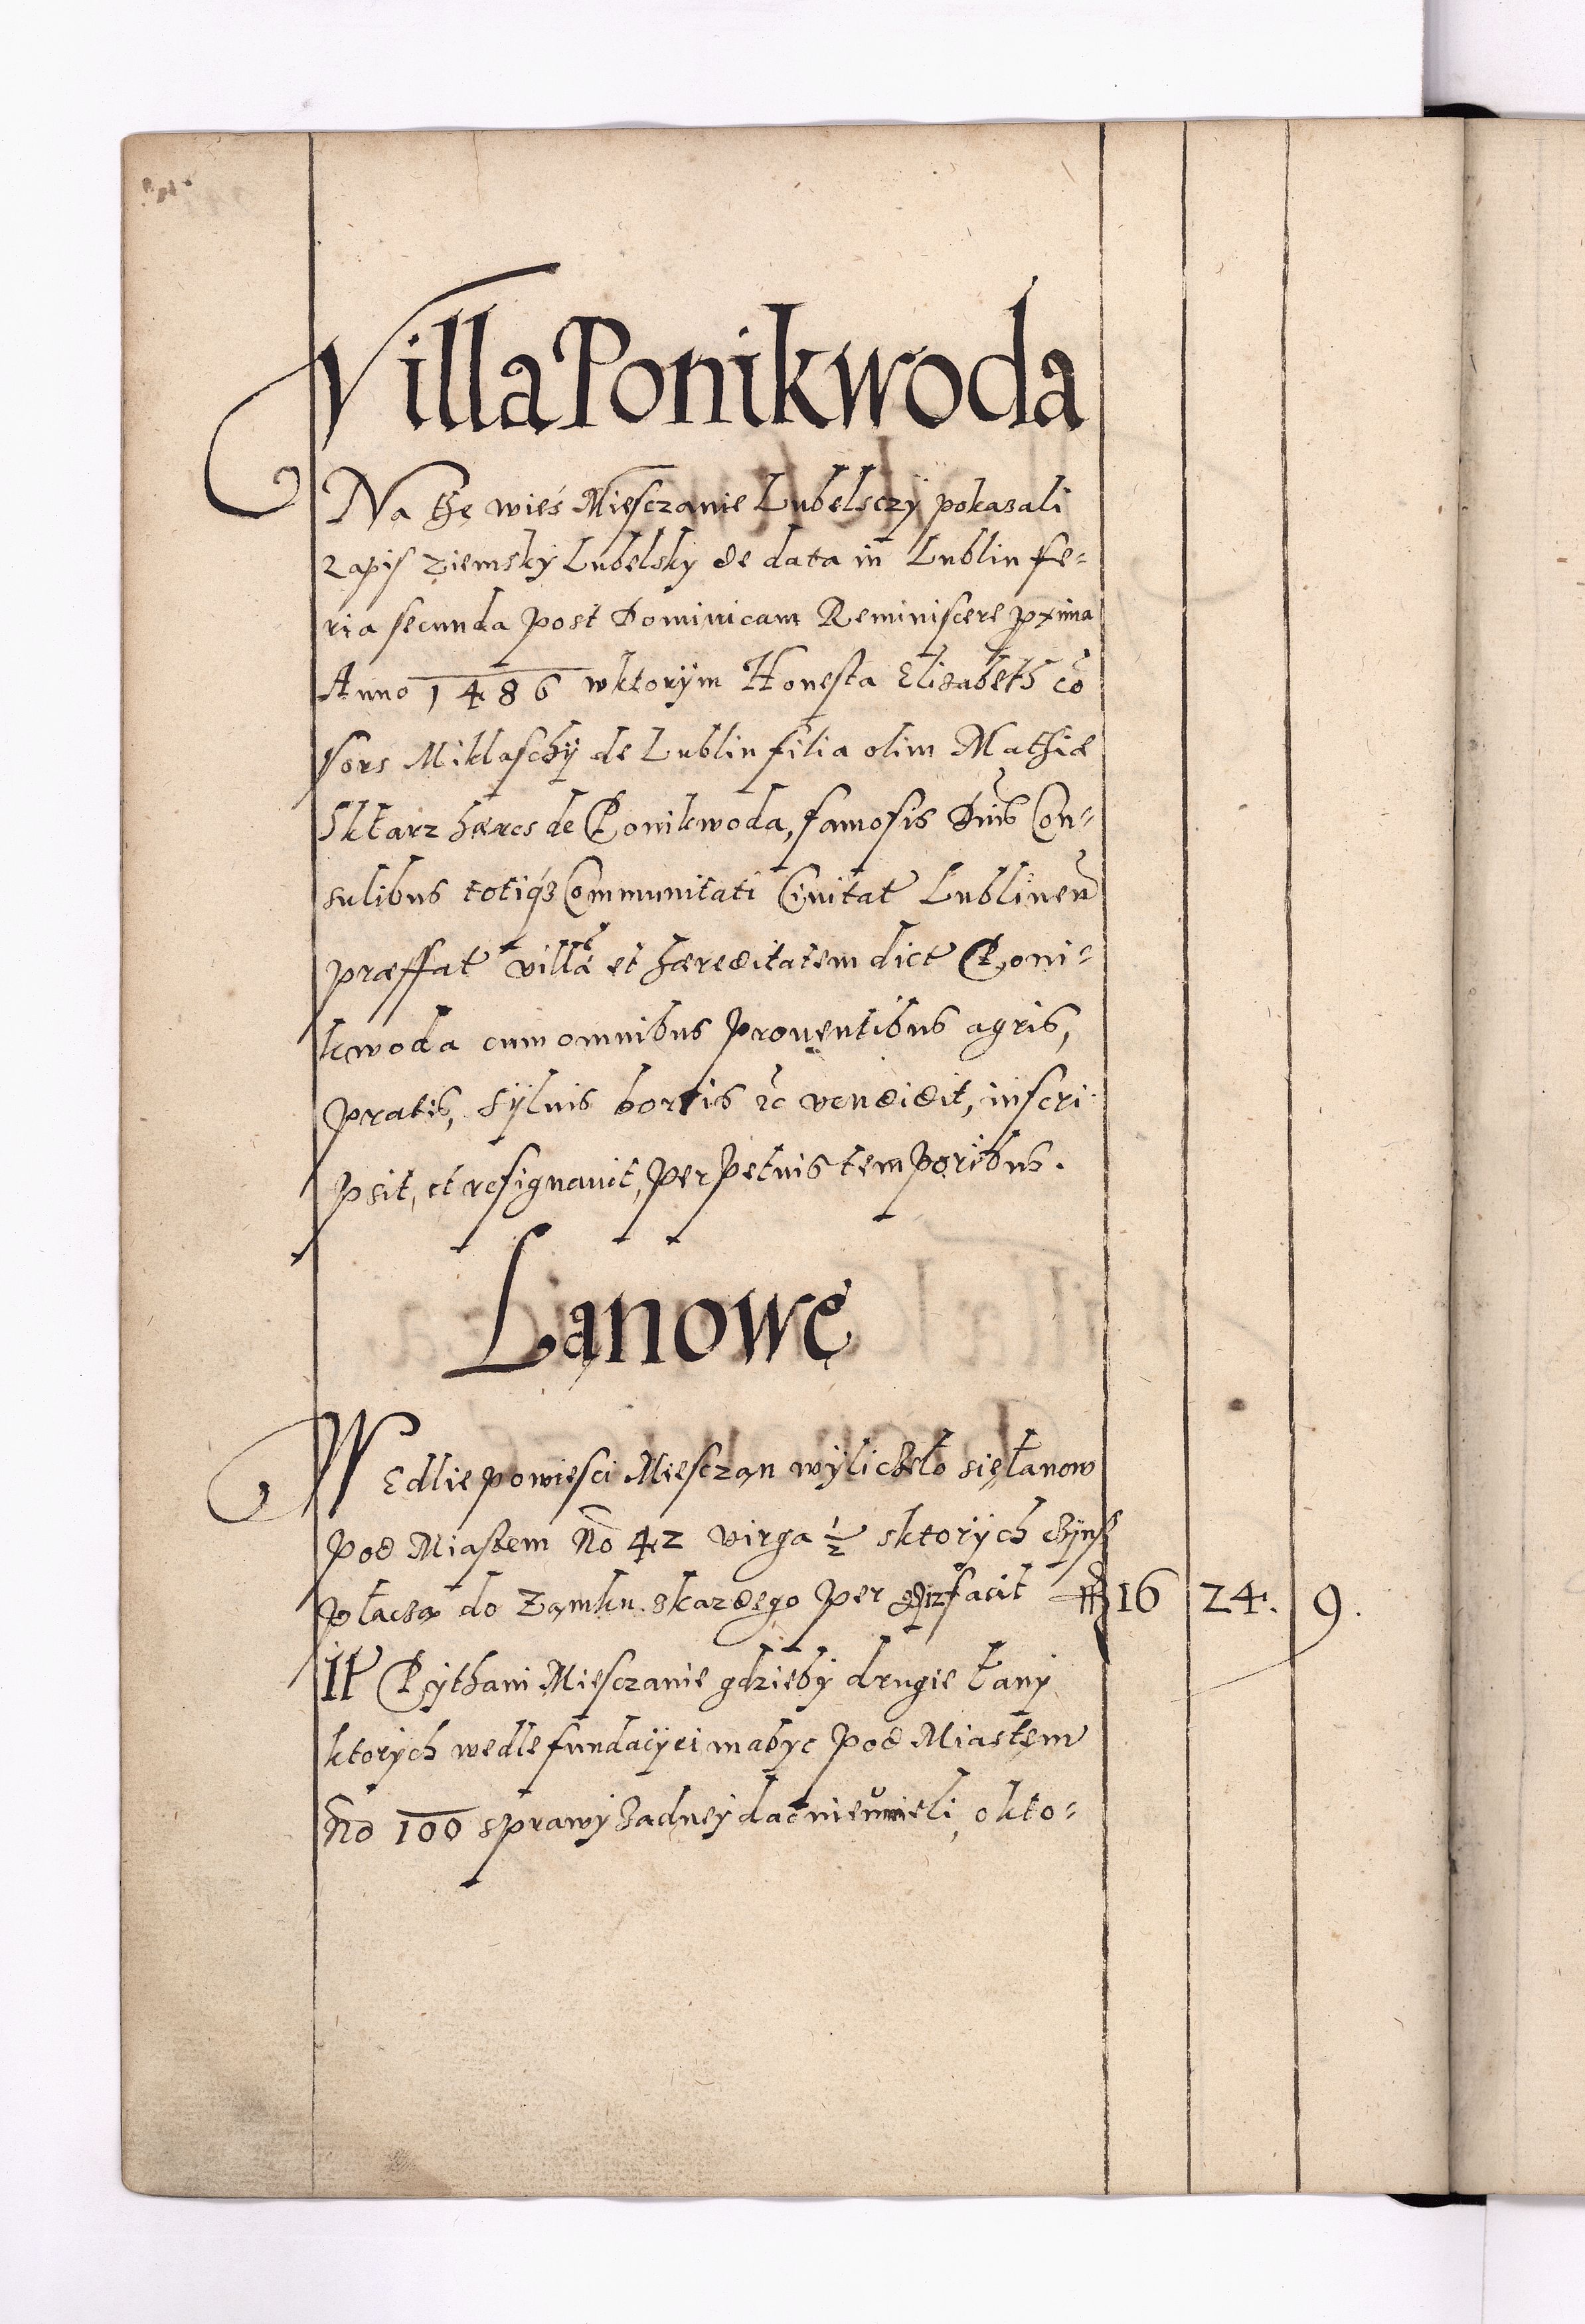 Villa Ponikwoda
Na thę wieś Miesczanie Lubelsczÿ pokazali
zapis ziemskÿ Lubelsky de data in Lublin fe-
ria secunda post Dominicam Reminiscere pxima
Anno 1486 wktorÿm Honesta Elizabeth cō
sors Miklaschÿ de Lublin filia olim Mathiæ
Skłarz hæres de Ponikwoda, famosis Dnis Con-
sulibus totiqз Communitati Ciuitat Lublinen
præffat villæ et hæreditatem dict Poni-
kwoda cum omnibus prouentibus agris,
pratis, sÿluis hortis &c vendidit, inscri-
psit, et resignauit, perpetuis temporibus.
Łanowe
Wedlie powiesci Miesczan wÿliczÿło się łanow
pod Miastem No 42 virga 1/2 sktorÿch czÿnsz
płaczą do Zamku skazdego per facit 16 24. 9.
It Pÿthani Miesczanie gdziebÿ drugie łanÿ
ktorÿch wedle fundacÿei ma byc pod Miastem
No 100 sprawÿ zadneÿ dać nie umieli, o kto-